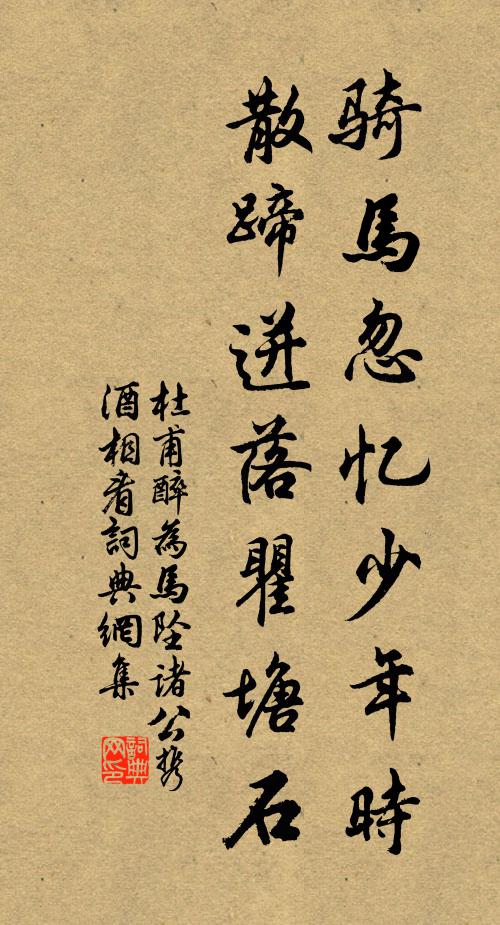 骑馬忽忆少年時
散蹄迸落瞿塘石
杜甫醉為馬坠諸公携
酒相看詞典網集
詞典
网印